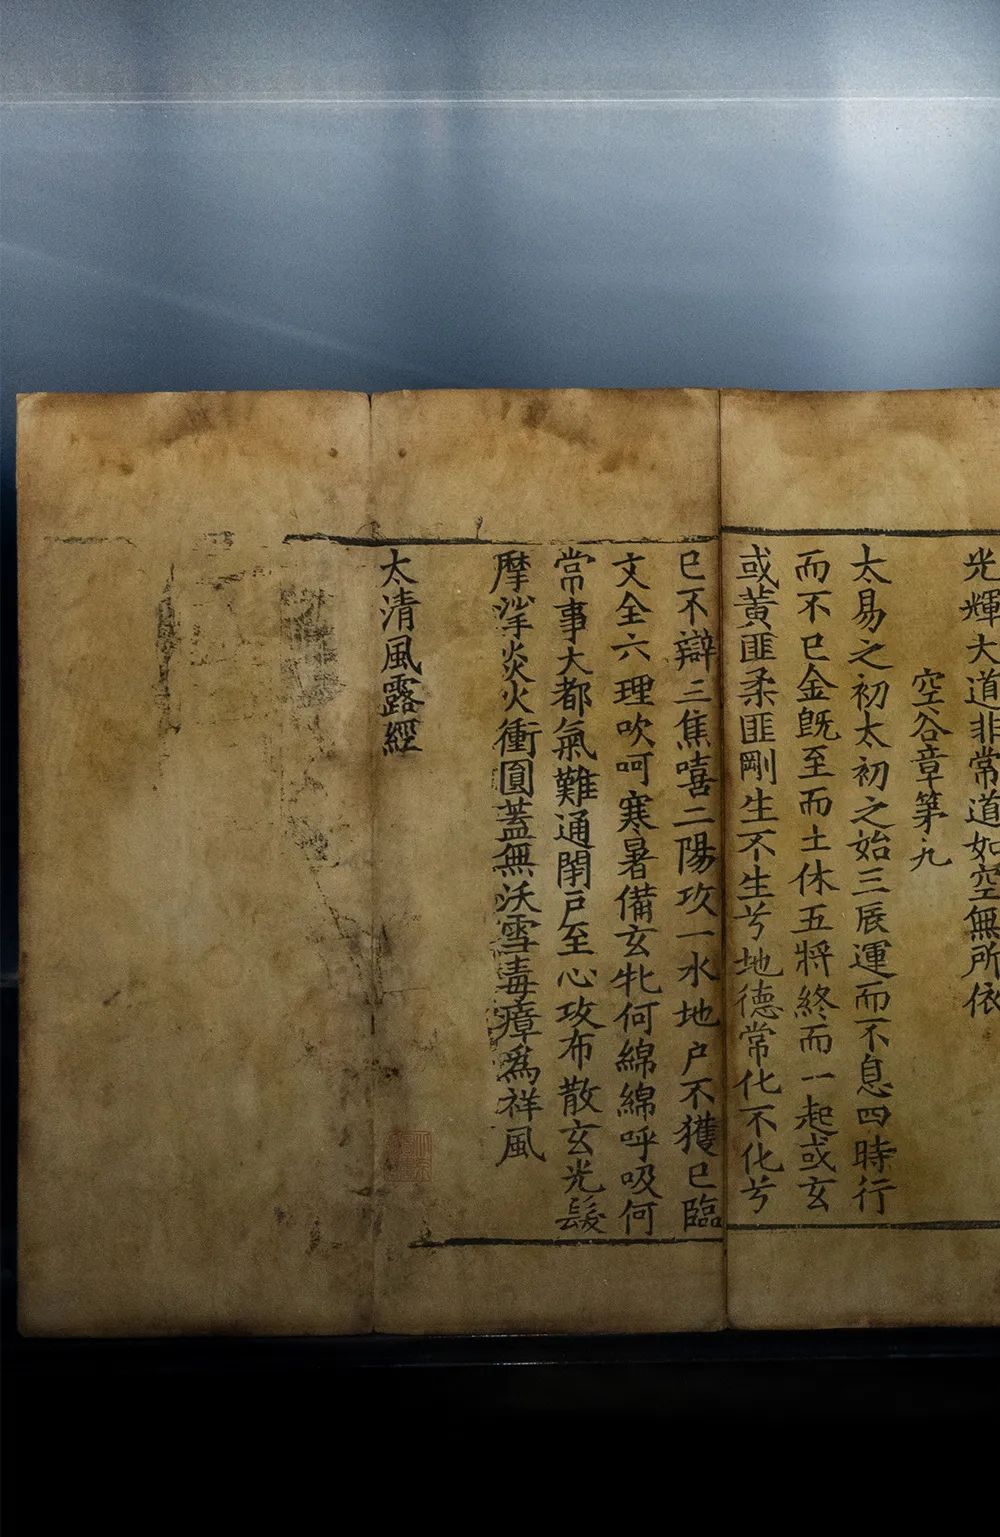 光輝大道非常道如空無所依
空谷章第九
太易之初太初之始三辰運而不息四時行
而不已金旣至而土休五將終而一起或玄
或黃匪柔匪剛生不生兮地德常化不化兮
已不辯三焦嘻二陽攻一水地户不獲已臨
文全六理吹呵寒暑備玄牝何綿綿呼吸何
常事大都氣難通閉戸至心攻布散玄光髮
摩挲炎火衝圓蓋無沃雪毒瘴爲祥風
太清風露經